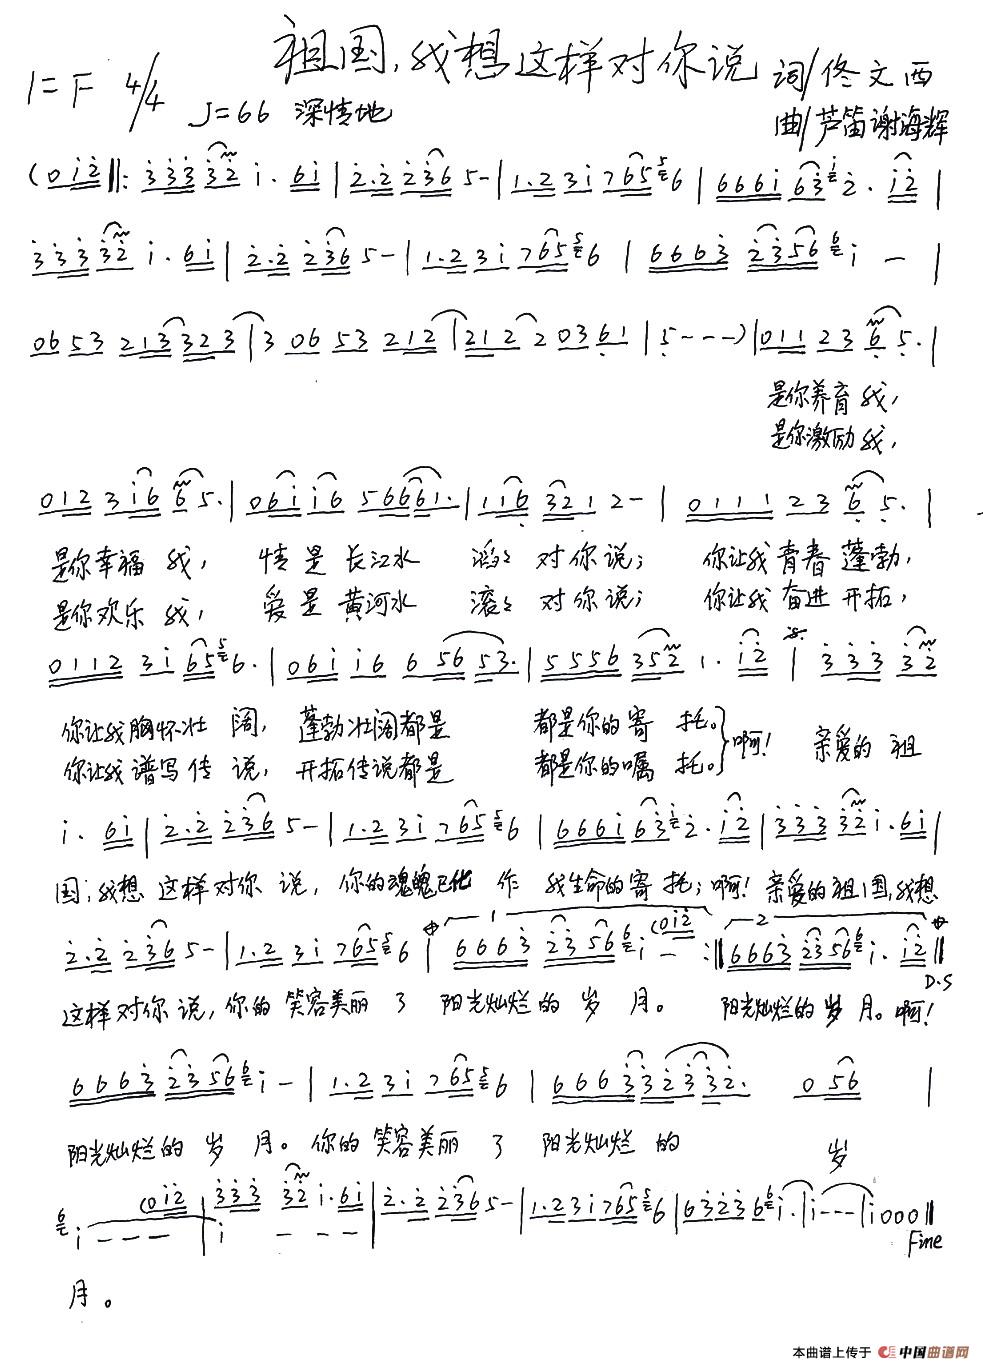 祖国,我想这样对你说
词/佟文西
1=F 4/4
♩=66 深情地
曲/芦笛 谢海辉
(0 i 2 ‖: 3 3 3 3 2 i. 6 i | 2. 2 2 3 6 5 - | 1. 2 3 i 7 6 5 6 | 6 6 6 i 6 3 2. i 2 |
3 3 3 3 2 i. 6 i | 2. 2 2 3 6 5 - | 1. 2 3 i 7 6 5 6 | 6 6 6 3 2 3 5 6 i - |
0 6 5 3 2 1 3 3 2 3 | 3 0 6 5 3 2 1 2 | 2 1 2 2 0 3 6 1 | 5 - - -) | 0 1 1 2 3 6 5. |
是你养育我,
是你激励我,
0 1 2 3 i 6 6 5. | 0 6 i i 6 5 6 6 6 1. | 1 1 6 3 2 1 2 - | 0 1 1 1 2 3 6 5. |
是你幸福我, 情是长江水 滔滔对你说; 你让我青春蓬勃,
是你欢乐我, 爱是黄河水 滚滚对你说; 你让我奋进开拓,
0 1 1 2 3 i 6 5 6. | 0 6 i i 6 6 5 6 5 3. | 5 5 5 6 3 5 2 1. i 2 | 3 3 3 3 2
你让我胸怀壮阔, 蓬勃壮阔都是 都是你的寄托。 啊! 亲爱的祖
你让我谱写传说, 开拓传说都是 都是你的嘱托。
i. 6 i | 2. 2 2 3 6 5 - | 1. 2 3 i 7 6 5 6 | 6 6 6 i 6 3 2. i 2 | 3 3 3 3 2 i. 6 i |
国;我想这样对你说, 你的魂魄已化作 我生命的寄托; 啊! 亲爱的祖国,我想
2. 2 2 3 6 5 - | 1. 2 3 i 7 6 5 6 | 1 6 6 6 3 2 3 5 6 i - (0 i 2 :‖ 2 6 6 6 3 2 3 5 6 i. i 2 ‖
D.S
这样对你说, 你的笑容美丽了 阳光灿烂的岁月。 阳光灿烂的岁月。啊!
6 6 6 3 2 3 5 6 i - | 1. 2 3 i 7 6 5 6 | 6 6 6 3 3 2 3 3 2. 0 5 6 |
阳光灿烂的岁月。你的笑容美丽了 阳光灿烂的 岁
i - - - (0 i 2 | 3 3 3 3 2 i. 6 i | 2. 2 2 3 6 5 - | 1. 2 3 i 7 6 5 6 | 6 3 2 3 6 i. | i - - - | i 0 0 0 ‖
i - - -
Fine
月。
本曲谱上传于 中国曲谱网